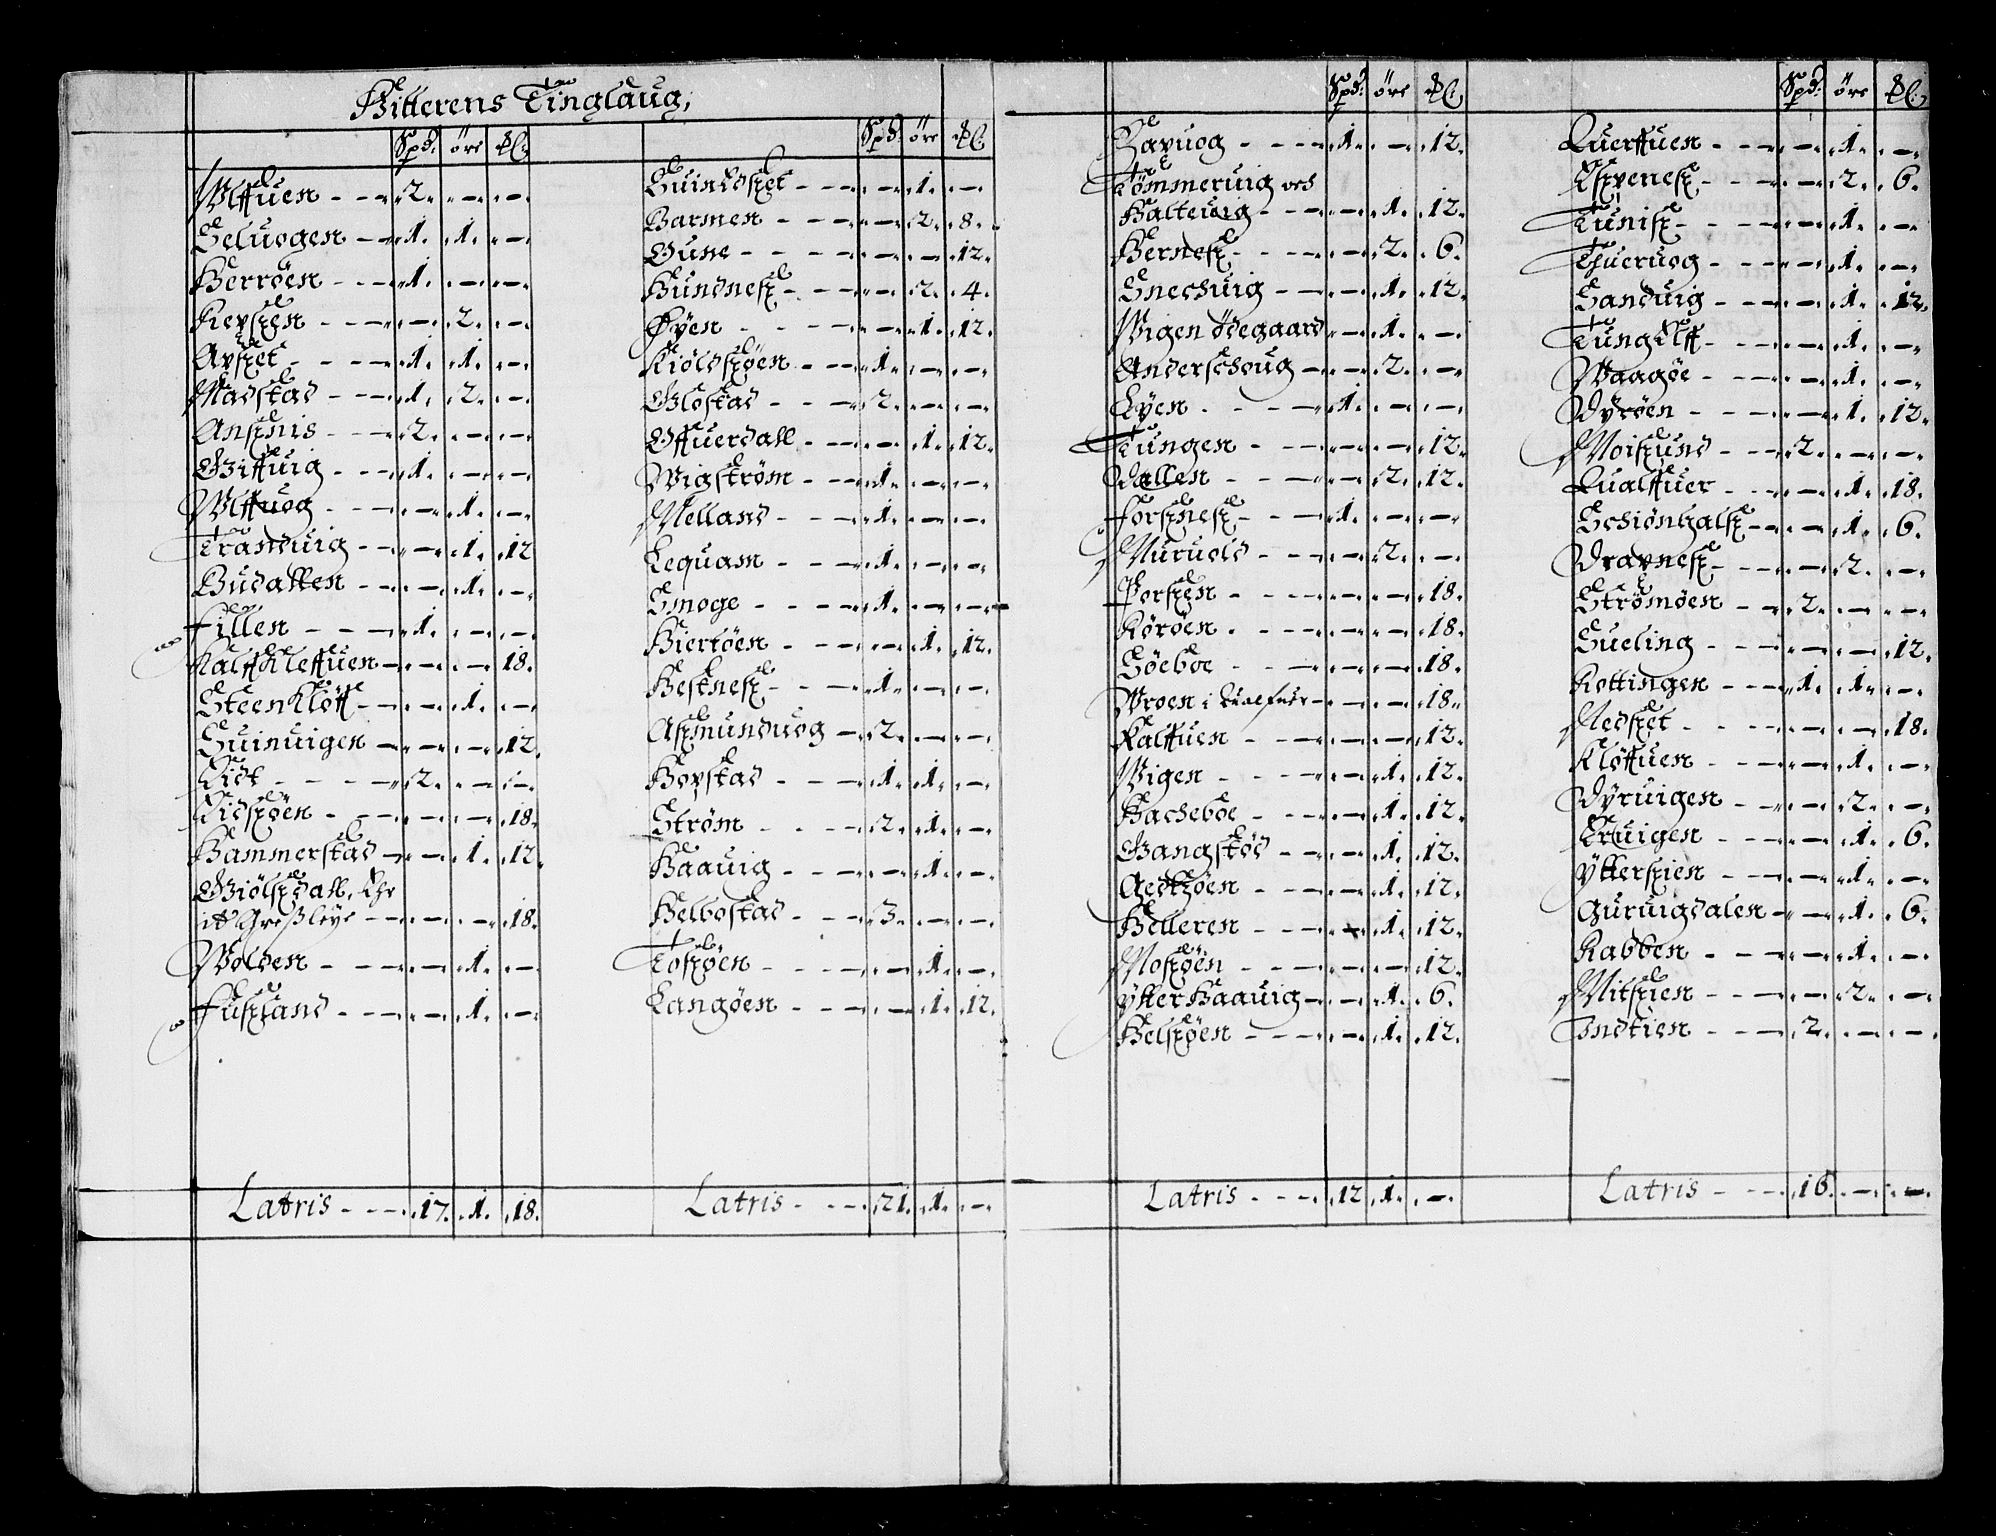 Hitterens Tinglaug,
Spd. öre ₰l.
Ulffuen - - - .2. .-. .-.
Seluogen - .1. .1. .-.
Herröen - - - .1. .-. .-.
Kiersen - - - .-. .2. .-.
Arset - - - .1. .1. .-.
Madstad - - - .1. .2. .-.
Ansnis - - - .2. .-. .-.
Giffuig - - - .1. .-. .-.
Ulffuog - - - .-. .1. .-.
Tranduig - - - .-. .1. .12
Budallen - - - .-. .1. .-.
Fillen - - - .1. .-. .-.
Kalffkleffuen - .-. .-. 18.
SteenKlöff - .-. .1. .-.
Suinuigen - .-. .-. .12.
Eidt - - - .2. .-. .-.
Eidsöen - - - .-. .-. .18.
Hammerstad - .-. .1. .12.
Giölsdall, Ehr
it Greßleye - - .-. .-. .18.
Wolden - - - .-. .1. .-.
Fusland - - - .-. .1. .-.
Latris - - - .17. .1. .18.
Spd. öre ₰l.
Suindset - - - .-. .1. .-.
Barmen - - - .-. .2. .8.
Gune - - - .-. .-. .12.
Hundnes - - - .-. .2. .4.
Øyen - - - .-. .1. .12.
Kiöldsöen - - .1. .-. .-.
Glostad - - - .2. .-. .-.
Offuerdall - - .-. .1. .12.
Wigström - - .1. .-. .-.
Melland - - - .1. .-. .-.
Lequam - - - .1. .-. .-.
Smoge - - - .1. .-. .-.
Hiertöen - - .-. .1. .12.
Hestnes - - - .1. .-. .-.
Asmunduog - .2. .-. .-.
Hopstad - - - .1. .1. .-.
Ström - - - .2. .1. .-.
Haauig - - - .-. .1. .-.
Helbostad - - .3. .-. .-.
Tosöen - - - .-. .1. .-.
Langöen - - - .-. .1. .12.
Latris - - - .21. .1. .-.
Spd. öre ₰l.
Haruog - - - .1. .-. .12.
Tömmeruig och
Balteuig - - - .-. .1. .12.
Bernes - - - .-. .2. .6.
Snechuig - - .-. .1. .12.
Wigen ödegaard - .-. .1. .-.
Anderschoug - .-. .2. .-.
Eyen - - - .1. .-. .-.
Tungen - - - .-. .-. .12.
Dallen - - - .-. .2. .12.
Forsnes - - - .1. .-. .-.
Muruold - - - .-. .2. .-.
Porsen - - - .-. .-. .18.
Köröen - - - .-. .-. .18.
Söeboe - - - .-. .-. .18.
Wroen i Qualfuer - .-. .-. .18.
Kalffuen - - - .-. .-. .12.
Wigen - - - .-. .1. .12.
Bacheboe - - .-. .1. .12.
Gangstöd - - .-. .1. .12.
Aedtzöen - - - .-. .1. .12.
Helleren - - - .-. .1. .12.
Mosöen - - - .-. .-. .12.
ytter Haauig - .-. .1. .6.
Helsöen - - - .-. .1. .12.
Latris - - - .12. .1. .-.
Spd. öre ₰l.
Querffuen - - .-. .1. .-.
Espenes - - - .-. .2. .6.
Tunis - - - .-. .1. .-.
Thueruog - - - .-. .1. .-.
Sanduig - - - .-. .1. .12.
Tungelff - - - .-. .1. .-.
Waagöe - - - .-. .1. .-.
Dyröen - - - .-. .1. .12.
Moisund - - - .2. .-. .-.
Qualffuer - - .-. .1. .18.
Schiönhals - - .-. .1. .6.
Drapnes - - - .-. .2. .-.
Strömöen - - .2. .-. .-.
Sueling - - - .-. .-. .12.
Kottingen - - .1. .1. .-.
Nedset - - - .-. .-. .18.
Klöffuen - - - .-. .1. .-.
Dyruigen - - - .-. .2. .-.
Eruigen - - - .-. .1. .6.
ytterspien - - .-. .1. .-.
Guruigdalen - .-. .1. .6.
Rabben - - - .-. .1. .-.
Mitspien - - - .-. .2. .-.
Indtien - - - .2. .-. .-.
Latris - - - .16. .-. .-.